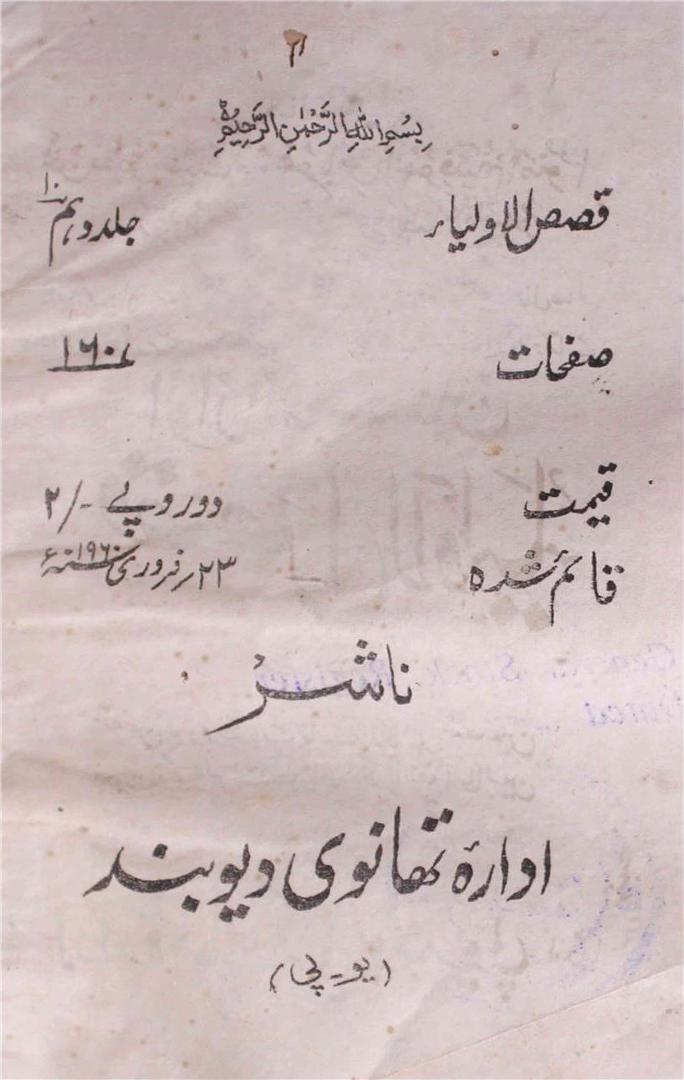 ۲
بِسْمِ اللّٰهِ الرَّحْمٰنِ الرَّحِيْمِ
قصص الاولیاء جلد دہم ۱۰
صفحات ۱۶۰
قیمت دو روپے -/۲
قائم شدہ ۲۳ر فروری ۱۹۶۰ سنہء
ناشر
ادارۂ تھانوی دیوبند
(یو-پی)